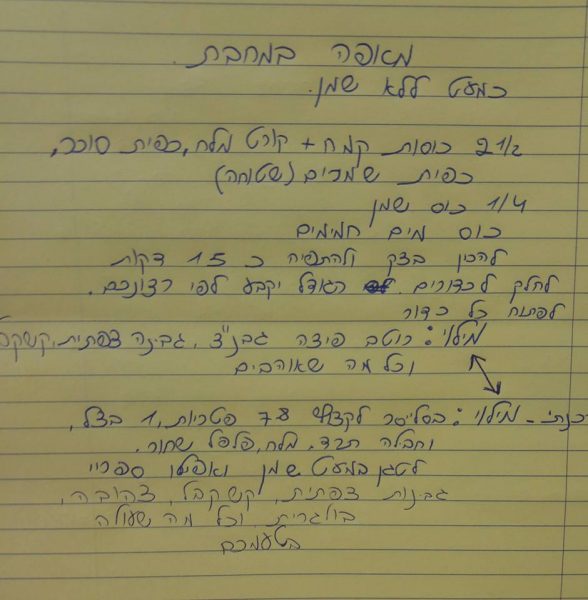 מאפה במחבת.
כמעט ללא שמן.
2 1/2 כוסות קמח + קורט מלח, כפית סוכר,
כפית שמרים (שטוחה)
1/4 כוס שמן
כוס מים חמימים
להכין בצק ולהתפיח כ 15 דקות
לחלק לכדורים. הגודל יקבע לפי רצונכם.
לפתוח כל כדור
מילוי: רוטב פיצה גבנ"צ, גבינה צפתית, קשקב
וכל מה שאוהבים
מילוי: בסלייסר לקצוץ 7-8 פטריות, 1 בצל,
וחבילה תרד. מלח, פלפל שחור.
לטגן במעט שמן ואפילו ספריי
גבינות צפתית, קשקבל, צהובה,
בולגרית וכל מה שעולה
בטעמכם